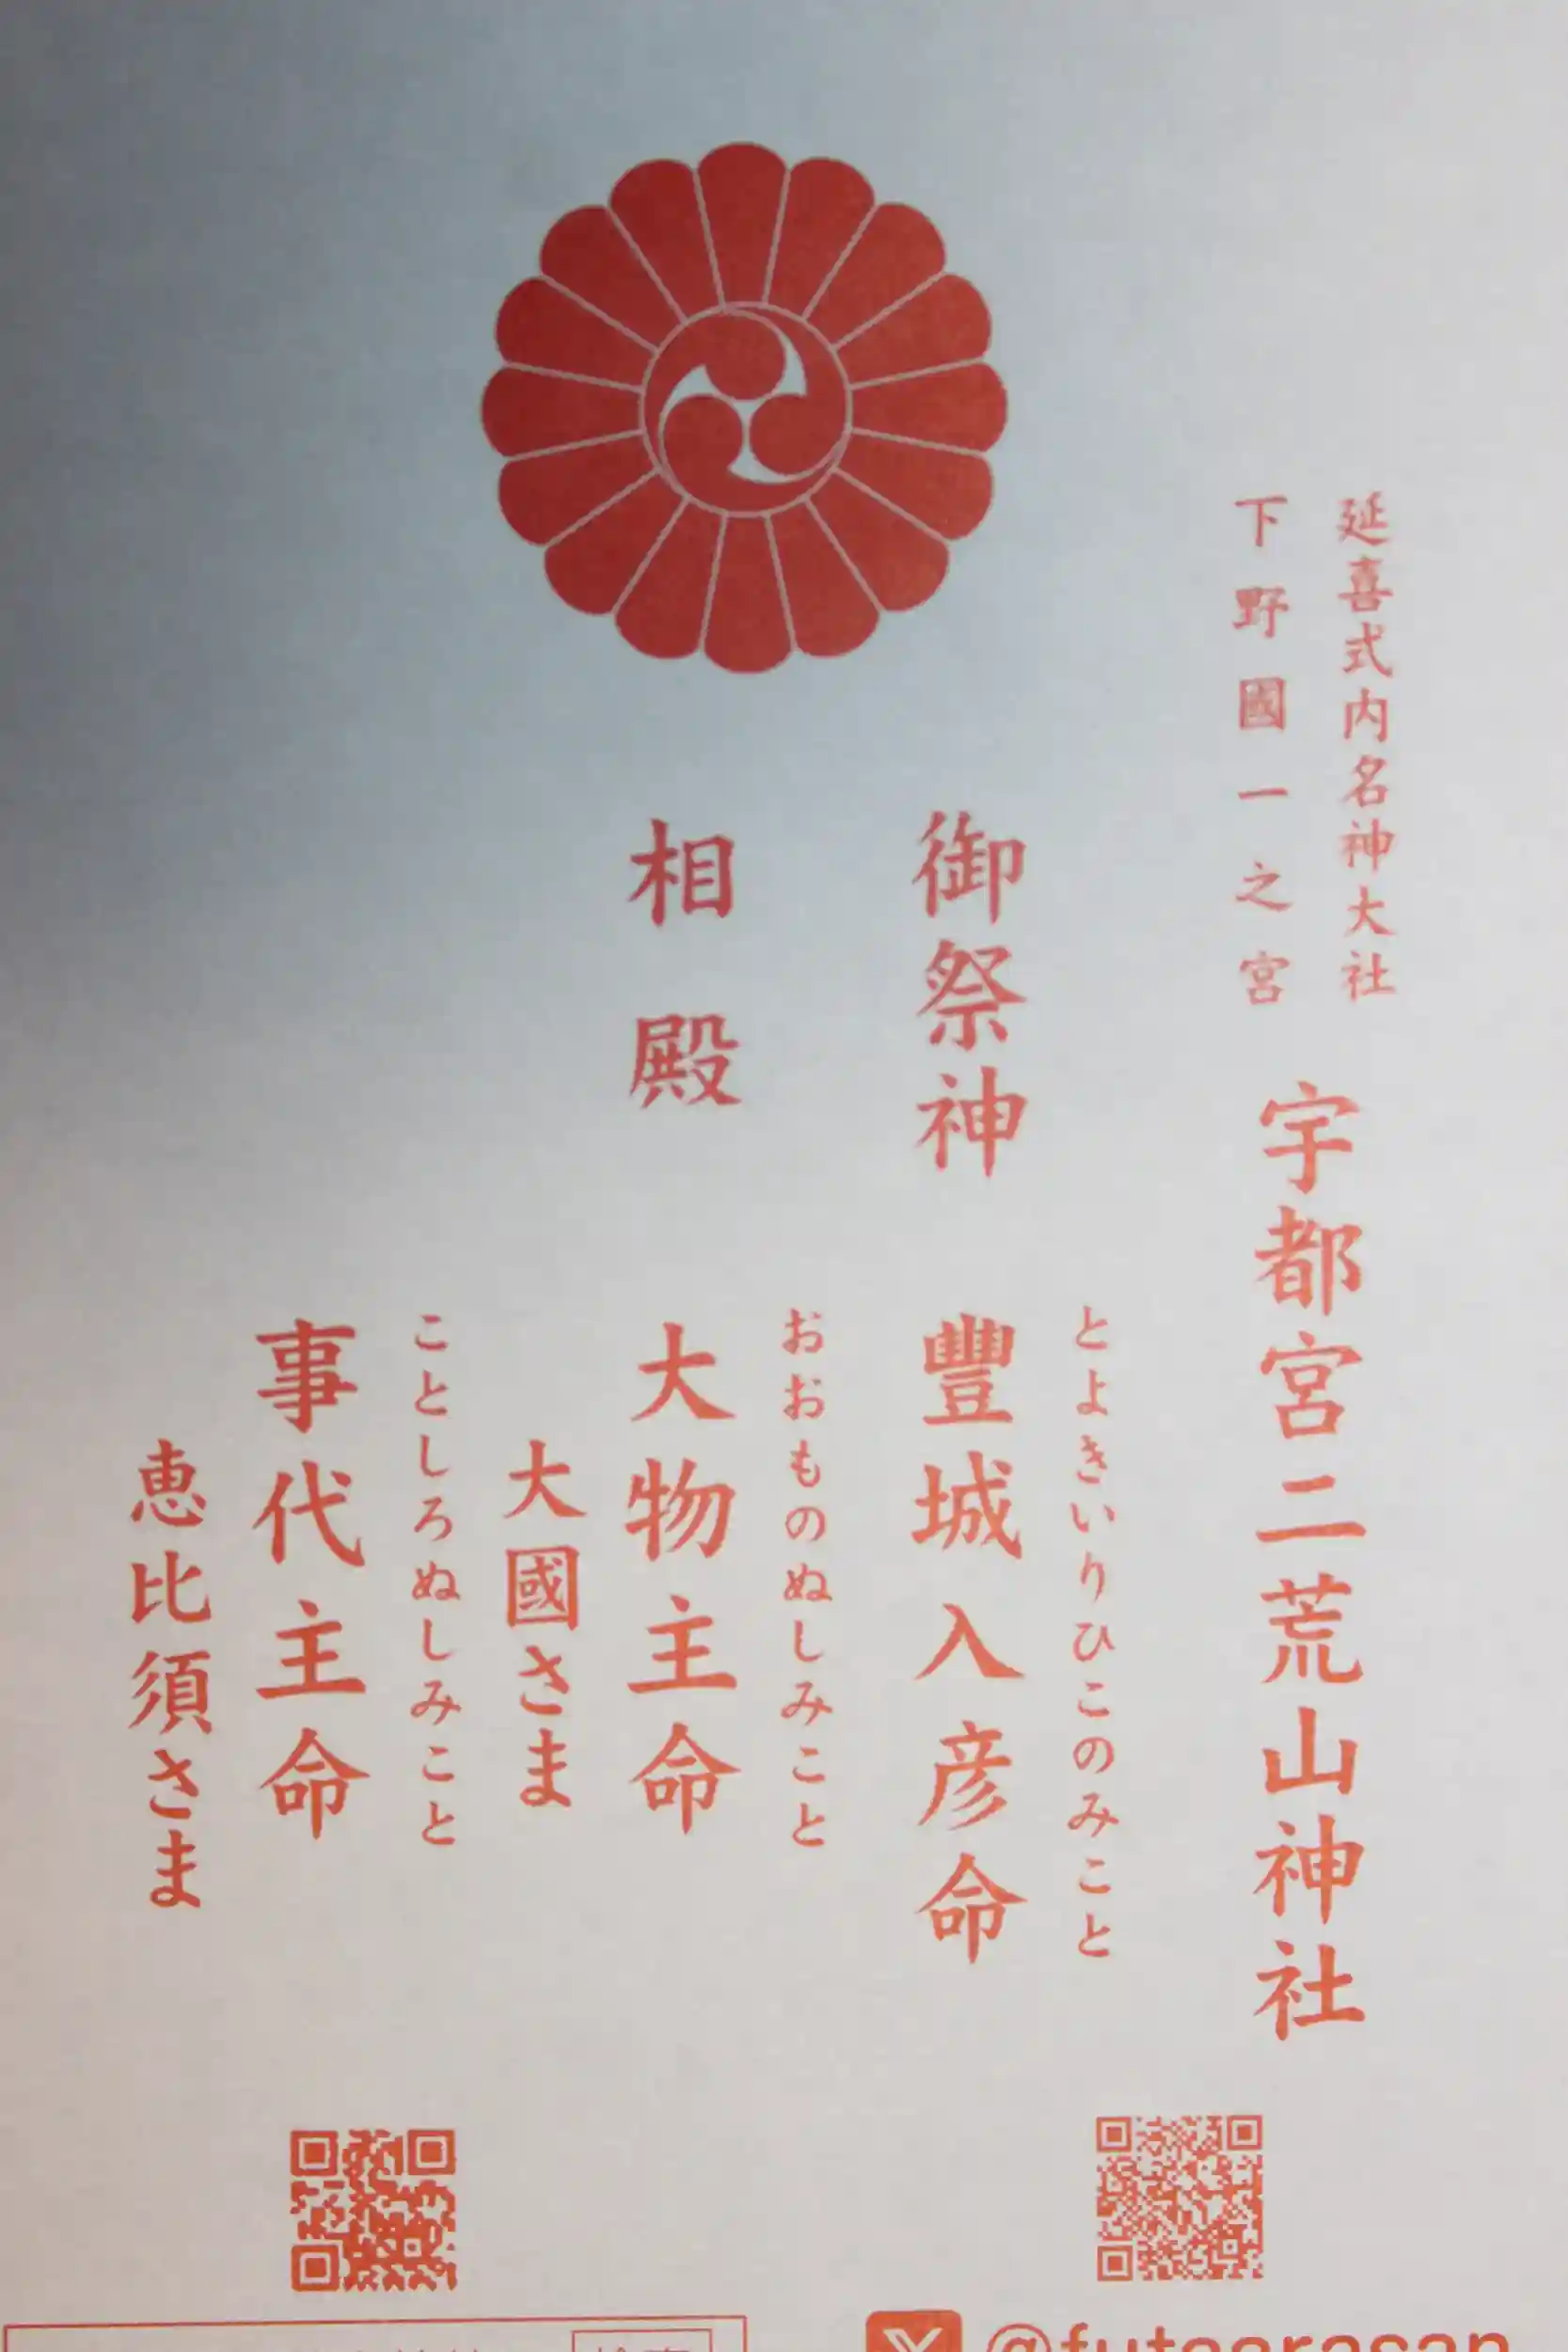 延喜式内名神大社
下野國一之宮
宇都宮二荒山神社
とよきいりひこのみこと
御祭神 豐城入彦命
おおものぬしみこと
相殿 大物主命
大國さま
ことしろぬしみこと
事代主命
恵比須さま